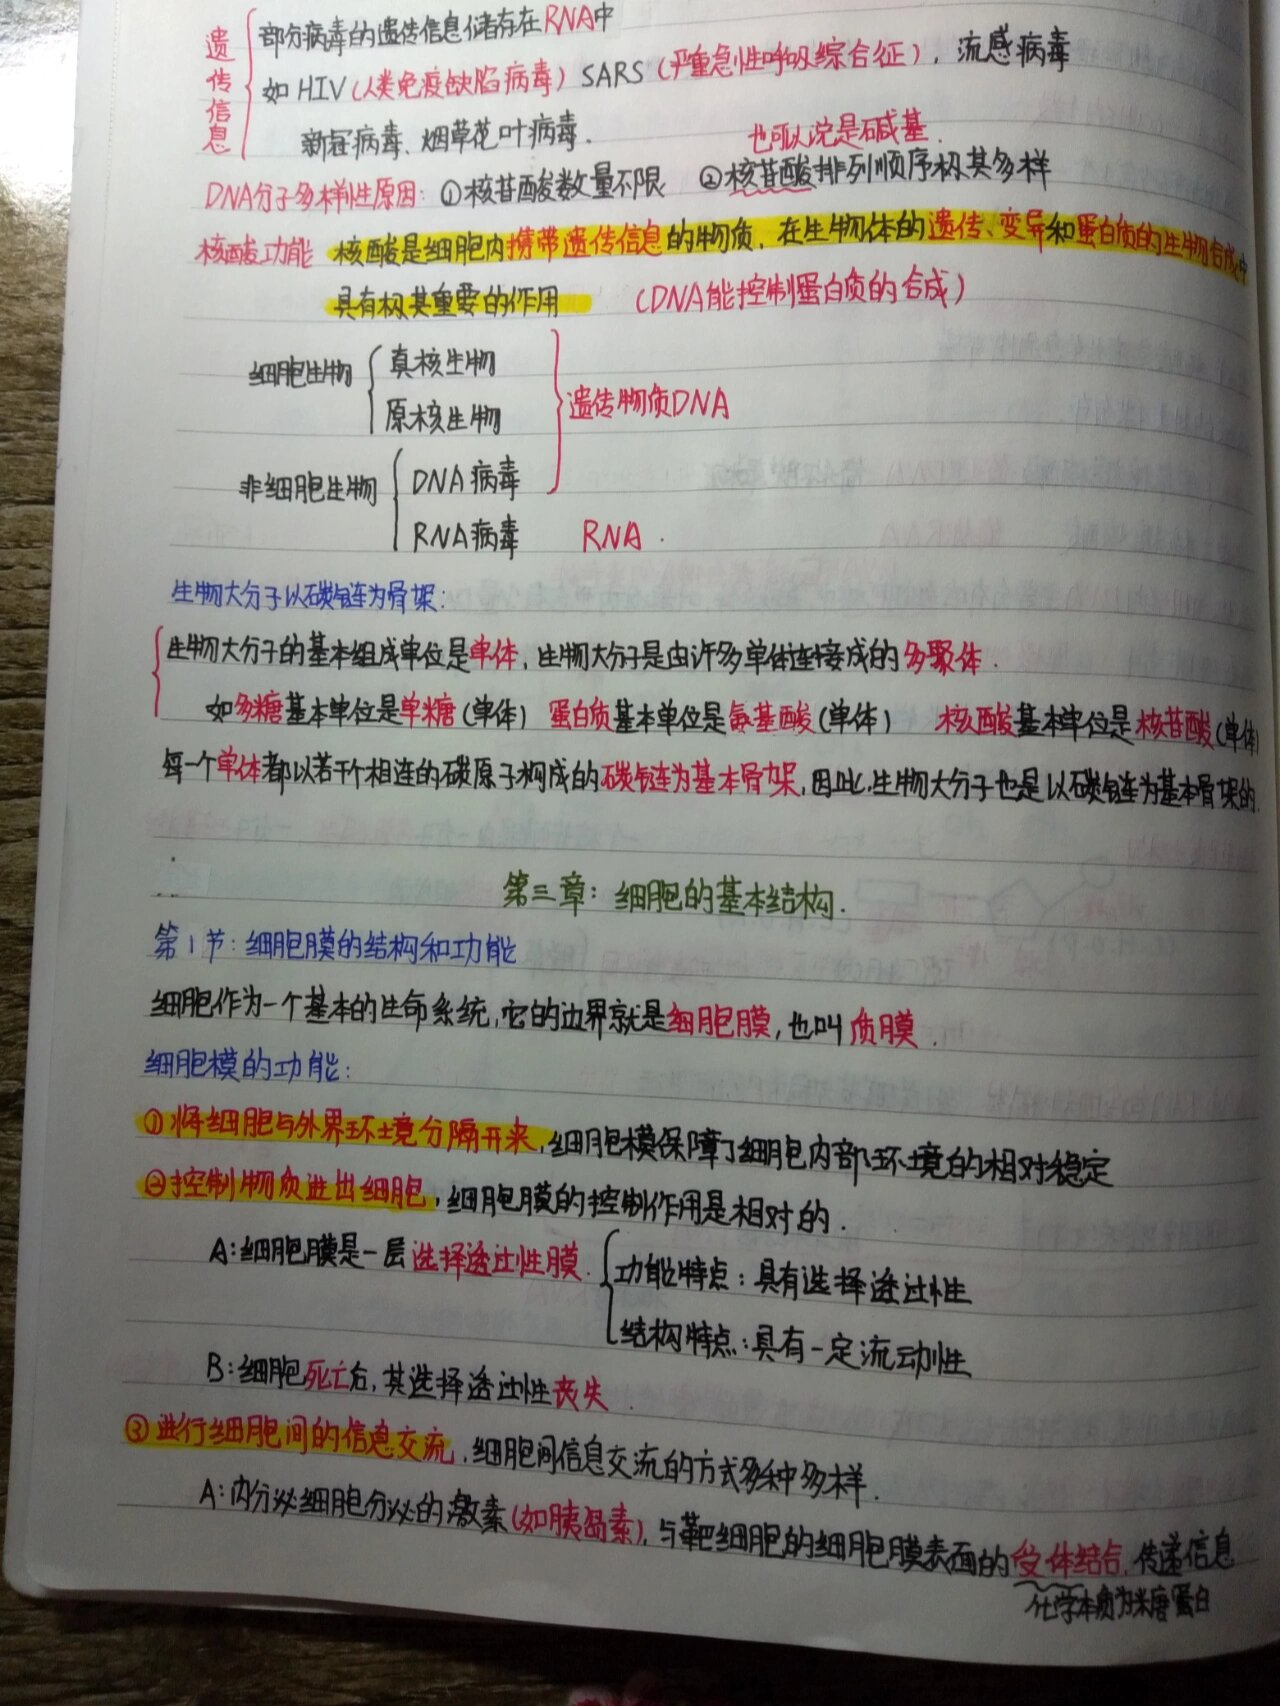 遗传信息
部分病毒的遗传信息储存在RNA中
如HIV(人类免疫缺陷病毒) SARS (严重急性呼吸综合征), 流感病毒
新冠病毒、烟草花叶病毒.
也可以说是碱基.
DNA分子多样性原因: ①核苷酸数量不限 ②核苷酸排列顺序极其多样
核酸功能 核酸是细胞内携带遗传信息的物质, 在生物体的遗传、变异和蛋白质的生物合成中
具有极其重要的作用 (DNA能控制蛋白质的合成)
细胞生物 真核生物
原核生物
遗传物质DNA
非细胞生物 DNA病毒
RNA病毒 RNA.
生物大分子以碳链为骨架:
生物大分子的基本组成单位是单体, 生物大分子是由许多单体连接成的多聚体.
如多糖基本单位是单糖(单体) 蛋白质基本单位是氨基酸(单体) 核酸基本单位是核苷酸(单体)
每一个单体都以若干个相连的碳原子构成的碳链为基本骨架, 因此, 生物大分子也是以碳链为基本骨架的.
第三章: 细胞的基本结构.
第1节: 细胞膜的结构和功能
细胞作为一个基本的生命系统, 它的边界就是细胞膜, 也叫质膜.
细胞模的功能:
①将细胞与外界环境分隔开来, 细胞模保障了细胞内部环境的相对稳定
②控制物质进出细胞, 细胞膜的控制作用是相对的.
A: 细胞膜是一层选择透过性膜. 功能特点: 具有选择透过性
结构特点: 具有一定流动性
B: 细胞死亡后, 其选择透过性丧失.
③进行细胞间的信息交流, 细胞间信息交流的方式多种多样.
A: 内分泌细胞分泌的激素(如胰岛素), 与靶细胞的细胞膜表面的受体结合, 传递信息
化学本质为米唐蛋白